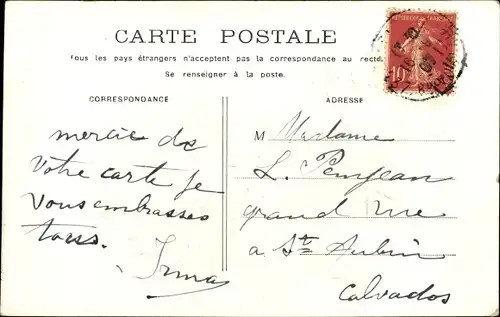 CARTE POSTALE
Tous les pays étrangers n'acceptent pas la correspondance au recto.
Se renseigner à la poste.
CORRESPONDANCE
ADRESSE
mercie de
votre carte je
vous embrasses
tous.
Irma
M Madame
L.
grand rue
a St Aubin
Calvados
10